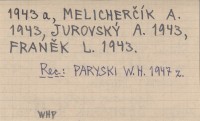 1943a, MELICHERČÍK A.
1943, JUROVSKÝ A. 1943,
FRANĚK L. 1943.
Rec: PARYSKI W.H. 1947 z.
WHP